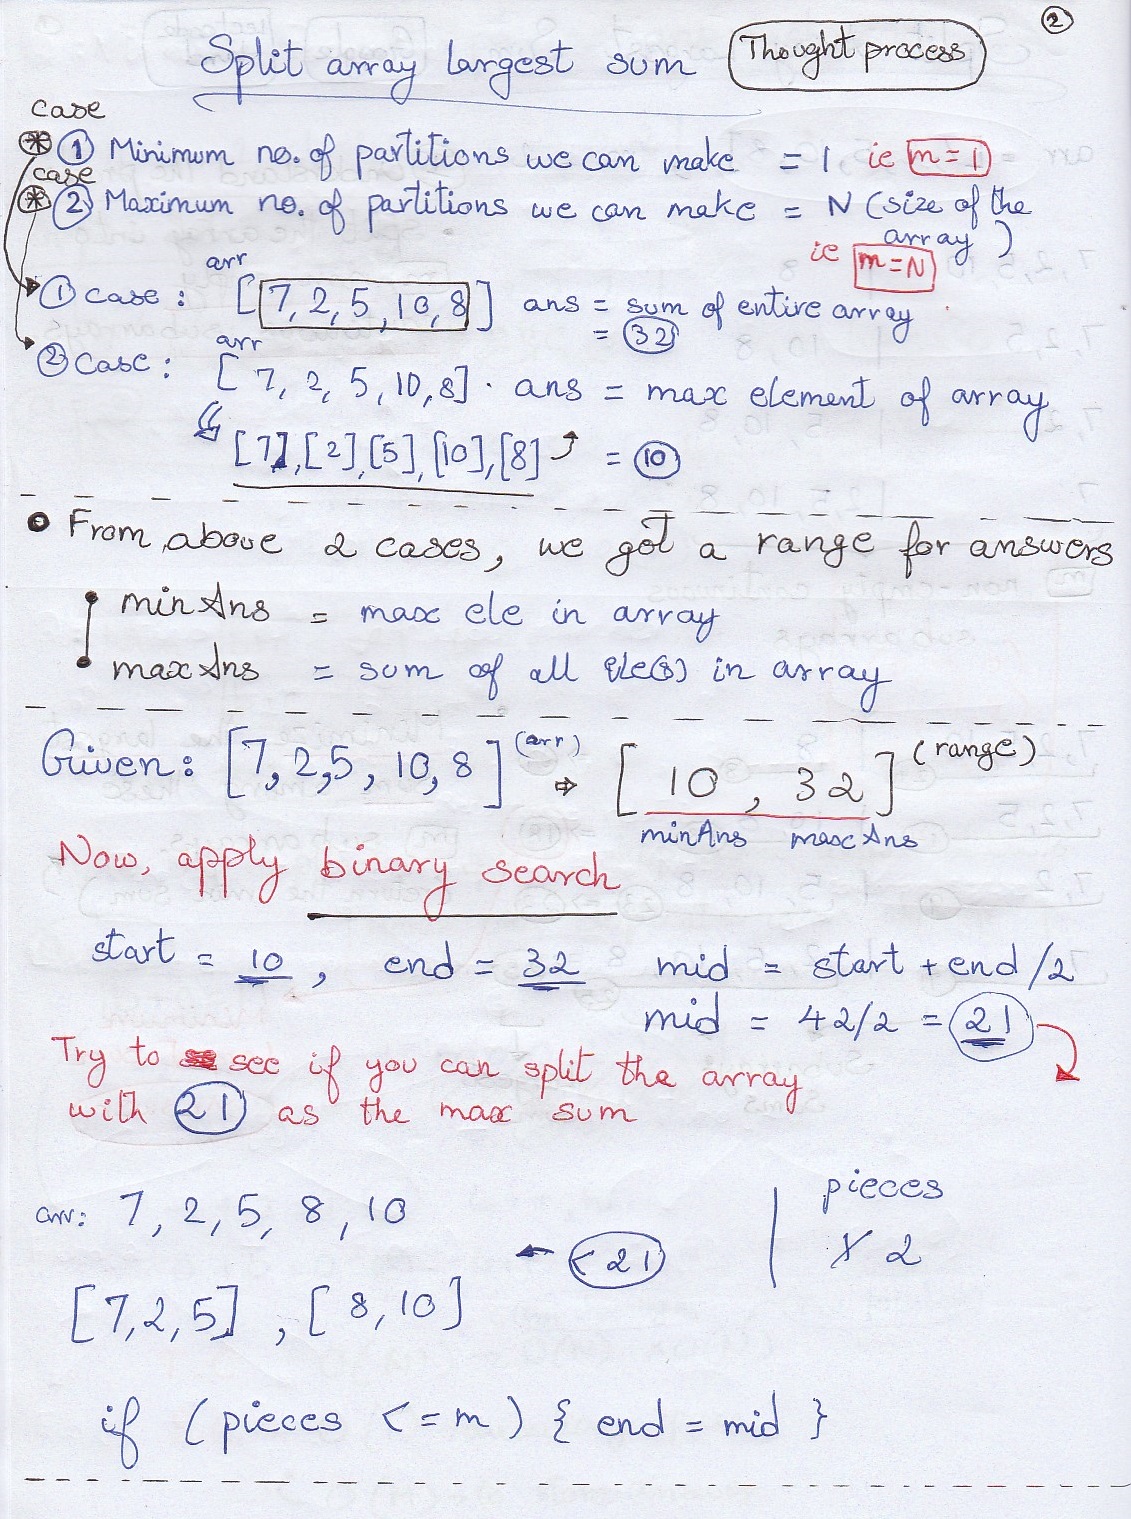 2
Split array largest sum
Thought process
case
* 1 Minimum no. of partitions we can make = 1 ie m = 1
case
* 2 Maximum no. of partitions we can make = N (size of the array)
ie m = N
arr
1 case : [7, 2, 5, 10, 8] ans = sum of entire array
= 32
arr
2 case : [7, 2, 5, 10, 8] . ans = max element of array
[7], [2], [5], [10], [8] = 10
From above 2 cases, we got a range for answers
minAns = max ele in array
maxAns = sum of all ele(s) in array
Given: [7, 2, 5, 10, 8] (arr) ⇒ [10, 32] (range)
minAns maxAns
Now, apply binary search
start = 10, end = 32 mid = start + end /2
mid = 42/2 = 21
Try to see if you can split the array
with 21 as the max sum
pieces
arr: 7, 2, 5, 8, 10
← < 21
1 2
[7,2,5] , [8,10]
if (pieces <= m) { end = mid }